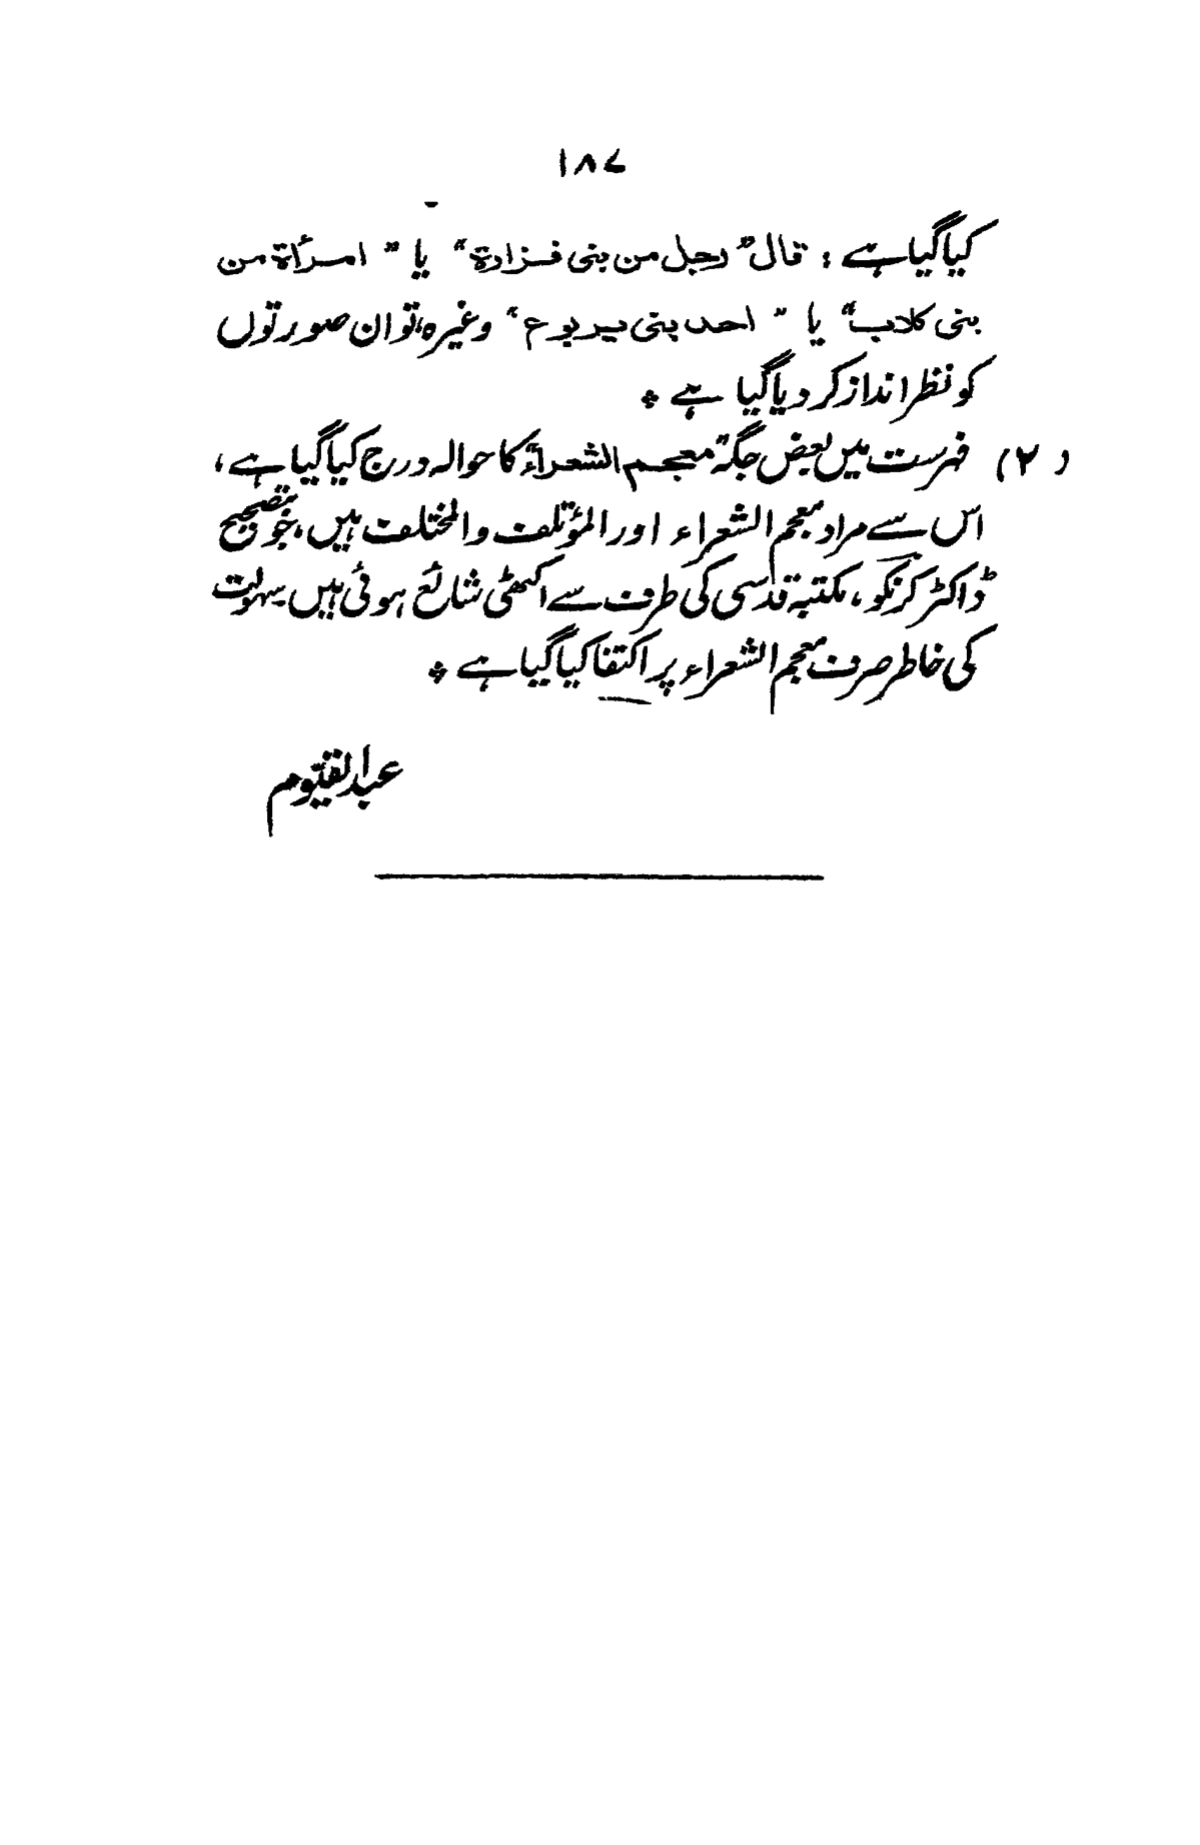 ۱۸۷
کیا گیا ہے : قال "رجل من بنی فزارة" یا "امرأة من
بنی کلاب" یا "احد بنی یربوع" وغیرہ، تو ان صورتوں
کو نظر انداز کر دیا گیا ہے ٭
(۲) فہرست میں بعض جگہ "معجم الشعراء" کا حوالہ درج کیا گیا ہے،
اس سے مراد معجم الشعراء اور المؤتلف والمختلف ہیں، جو بتصحیح
ڈاکٹر کرنکو، مکتبہ قدسی کی طرف سے اکھٹی شائع ہوئی ہیں سہولت
کی خاطر صرف معجم الشعراء پر اکتفا کیا گیا ہے ٭
عبدالقیّوم